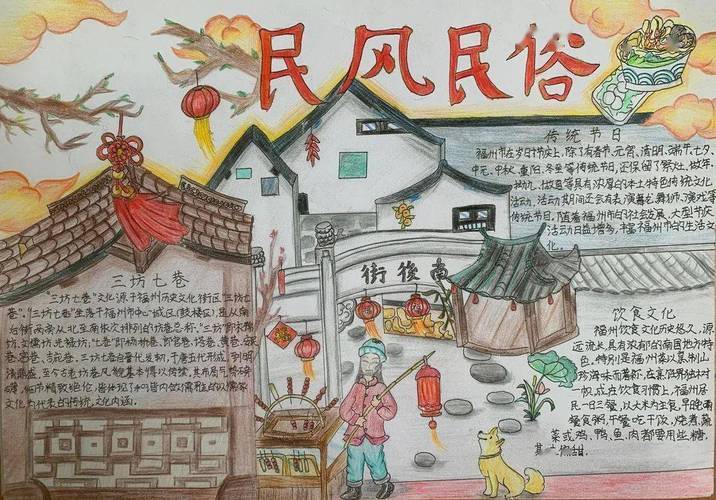 民风民俗
传统节日
福州市在岁时节点上,除了有春节、元宵、清明、端午、七夕、
中元、中秋、重阳、冬至等传统节日,还保留了祭灶、做年、
拗九、做夏等具有浓厚的本土特色传统文化
活动,活动期间还会有去演舞龙舞狮、演戏等
传统节目。随着福州市的社会发展,大型节庆
活动日益增多,丰富福州市的生活文
化。
街後南
三坊七巷
"三坊七巷"文化源于福州历史文化街区"三坊七
巷"。"三坊七巷"坐落于福州市中心城区(鼓楼区),是从南
后街两旁从北至南依次排列的坊巷总称。"三坊"即衣锦
坊、文儒坊、光禄坊,"七巷"即杨桥巷、郎官巷、塔巷、黄巷、安民
巷、宫巷、吉庇巷。三坊七巷自晋代发轫,于唐五代形成,到明
清鼎盛,至今古老坊巷风貌基本得以传续,其布局与
细节精致绝伦,皆体现了
文化为代表的传统文化内涵。
饮食文化
福州饮食文化历史悠久,源
远流长,具有浓郁的南国地方特
色。特别是福州菜以烹制山
珍海味而著称,在烹饪界独树
一帜。在饮食习惯上,福州居
民一日三餐,以大米为主食,早晚两
餐食粥,午餐吃干饭,烧煮蔬
菜或鸡、鸭、鱼、肉都要用些糖,
其